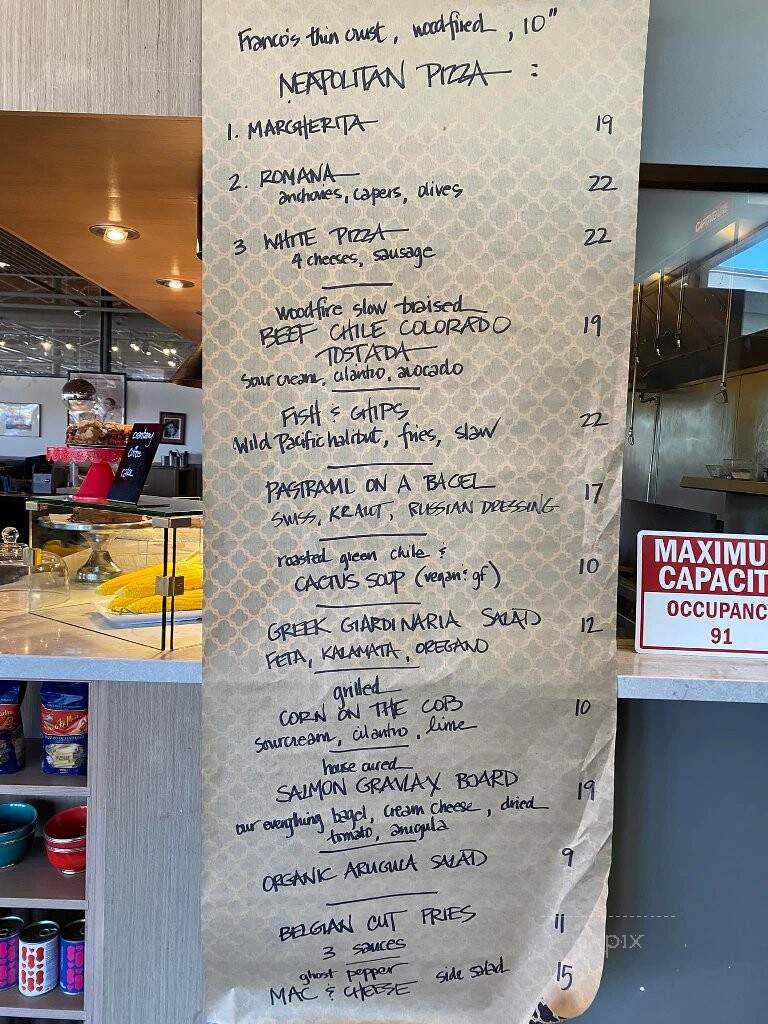 Franco's thin crust, woodfired, 10"
NEAPOLITAN PIZZA :
1. MARGHERITA 19
2. ROMANA 22
anchovies, capers, olives
3 WHITE PIZZA 22
4 cheeses, sausage
woodfire slow braised
BEEF CHILE COLORADO 19
TOSTADA
sour cream, cilantro, avocado
FISH & CHIPS 22
Wild Pacific halibut, fries, slaw
PASTRAMI ON A BAGEL 17
SWISS, KRAUT, RUSSIAN DRESSING
roasted green chile &
CACTUS SOUP (vegan & gf) 10
GREEK GIARDINARIA SALAD 12
FETA, KALAMATA, OREGANO
grilled
CORN ON THE COB 10
sourcream, cilantro, lime
house cured
SALMON GRAVLAX BOARD 19
our everything bagel, cream cheese, dried
tomato, arugula
ORGANIC ARUGULA SALAD 9
BELGIAN CUT FRIES 11
3 sauces
ghost pepper side salad 15
MAC & CHEESE
MAXIMU
CAPACIT
OCCUPANC
91